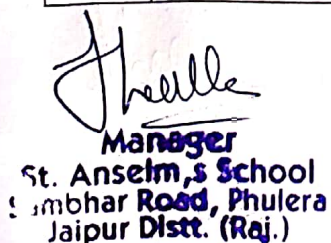 Manager
St. Anselm,s School
Sambhar Road, Phulera
Jaipur Distt. (Raj.)